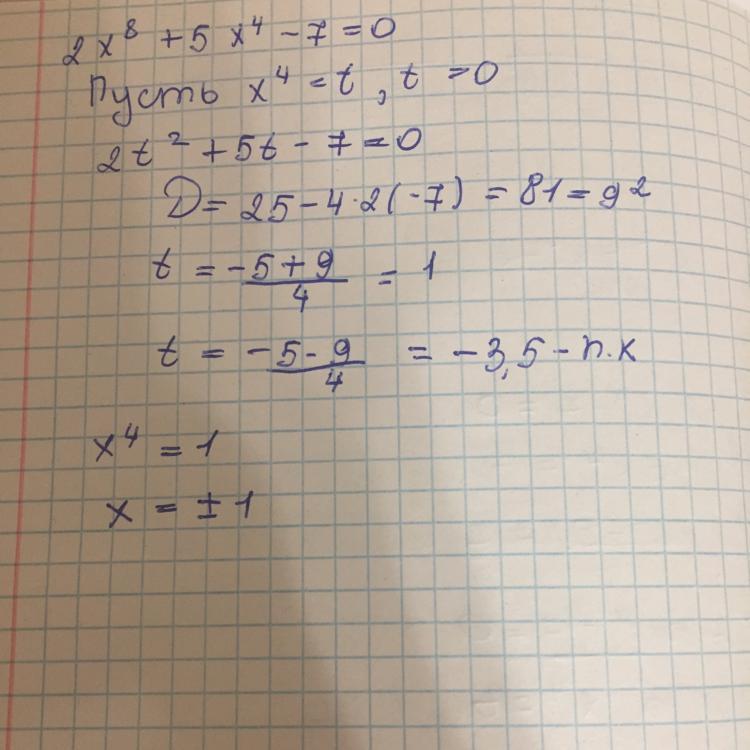 2x⁸ + 5x⁴ - 7 = 0
Пусть x⁴ = t, t = 0
2t² + 5t - 7 = 0
D = 25 - 4·2(-7) = 81 = 9²
t = (-5 + 9)/4 = 1
t = (-5 - 9)/4 = -3,5 - п.к
x⁴ = 1
x = ± 1